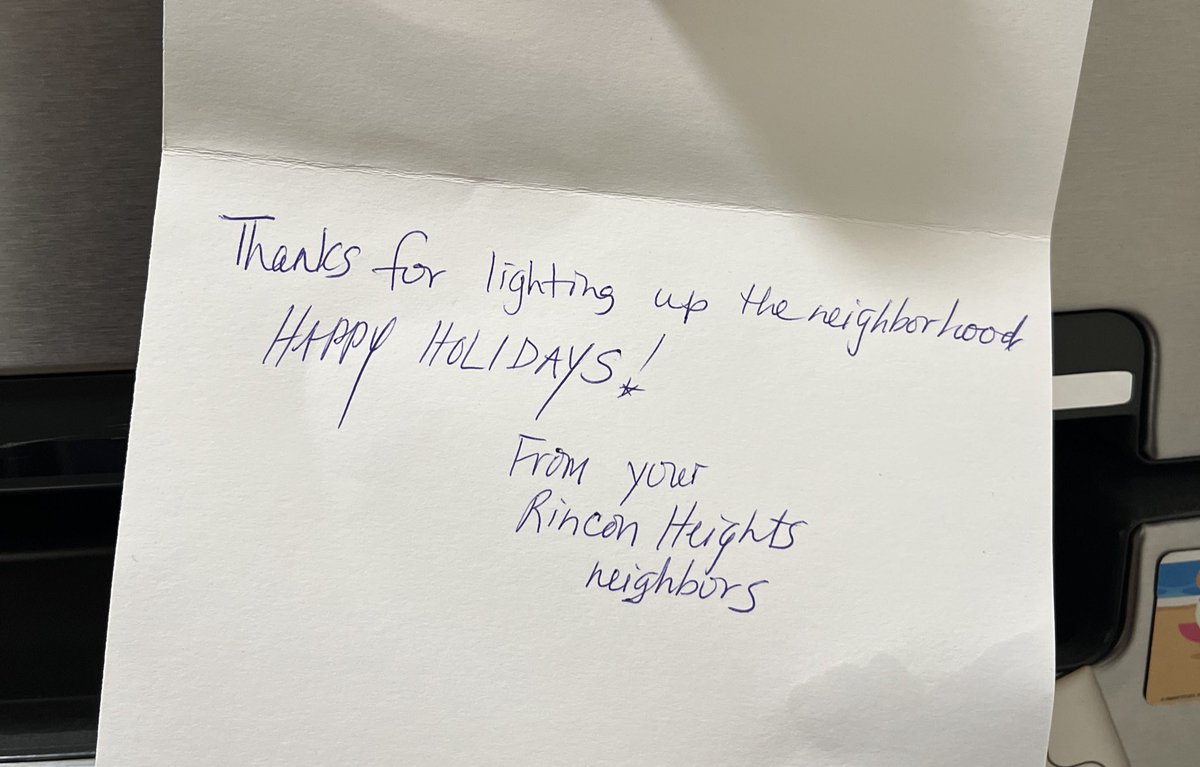 Thanks for lighting up the neighborhood
HAPPY HOLIDAYS!
From your
Rincon Heights
neighbors